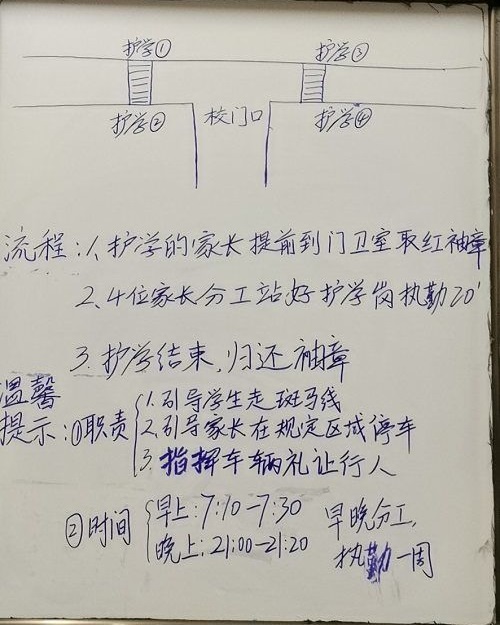 护学① 护学③
护学② 校门口 护学④
流程:1、护学的家长提前到门卫室取红袖章
2、4位家长分工站好护学岗执勤20'
3.护学结束,归还袖章
温馨
提示:①职责
1.引导学生走斑马线
2.引导家长在规定区域停车
3.指挥车辆礼让行人
②时间
早上:7:10-7:30
晚上:21:00-21:20
早晚分工,
执勤一周